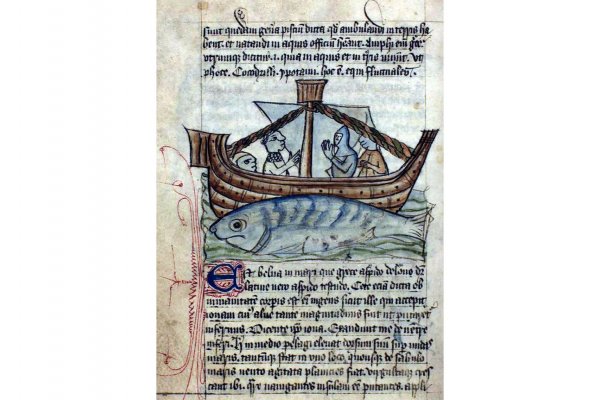 sunt quedam gen̄a pisciū dicta qd̄ ambulandi in terris ha
bent. et natandi in aquis officiū h̄ant. Amphi em̄ gre
utrumque dicitur .i. quia in aquis et in tris uiuūt. ut
phoce. Cocodrilli. ypotami. hoc ē. equi fluctuales.
Est belua in mari que grece aspido delone dr̄
latine uero aspido testudo. Cete eciā dicta ob
inmanitatem corpis est eī ingens sicut ille qui accepit
ionam cuiꝰ aluꝰ tante magnitudinis fuit ut putaret
infernus. Dicente ipo iona. Exaudiuit me de uentre
inferi. in medio pelagi eleuat dorsum suū sup undas
maris. tantūque stat in uno loco. quousque de sabulo
maris uento agitata planicies fiat. uirgultaque cres
cant ibi. nauigantes insulam eē putantes. appli